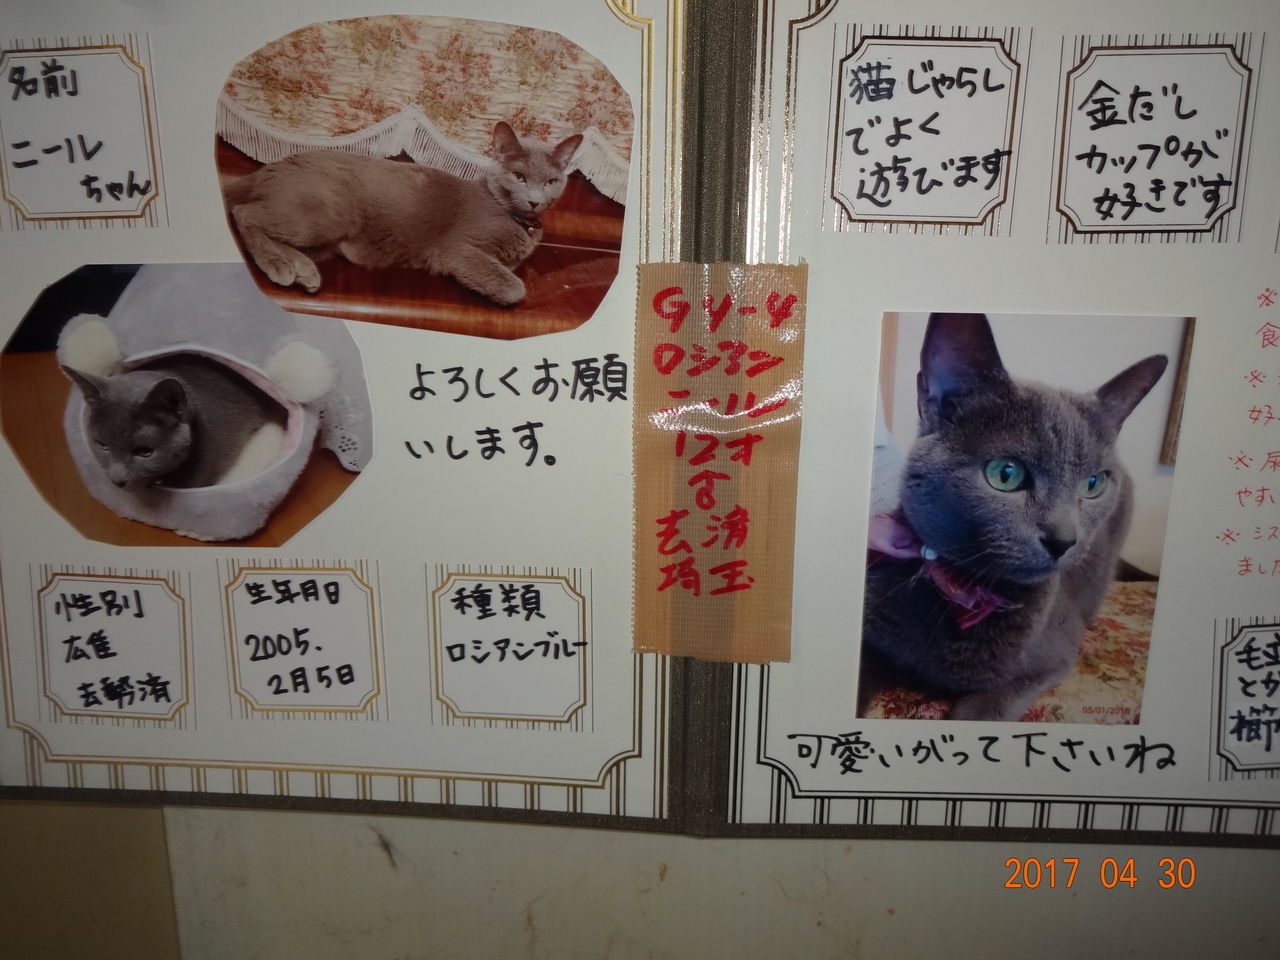 名前
ニール
ちゃん
よろしくお願
いします。
性別
広隹
去勢済
生年月日
2005.
2月5日
種類
ロシアンブルー
G4-4
ロシアン
ニール
12才
♂
去済
埼玉
猫じゃらし
でよく
遊びます
金だし
カップが
好きです
05/01/2016
可愛いがって下さいね
※
食
※
好
※尿
やすい
※シス
ました
とか
櫛
2017 04 30